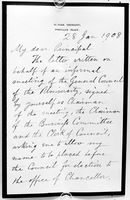 28 Jan 1908
My dear Principal
The letter written on
behalf of an informal
meeting of the General Council
of the University, signed
by yourself as Chairman
of the meeting, the Chairman
of the Business Committee
and the Clerk of Council,
asking me to allow my
name to be placed before
the Council for election to
the office of Chancellor.